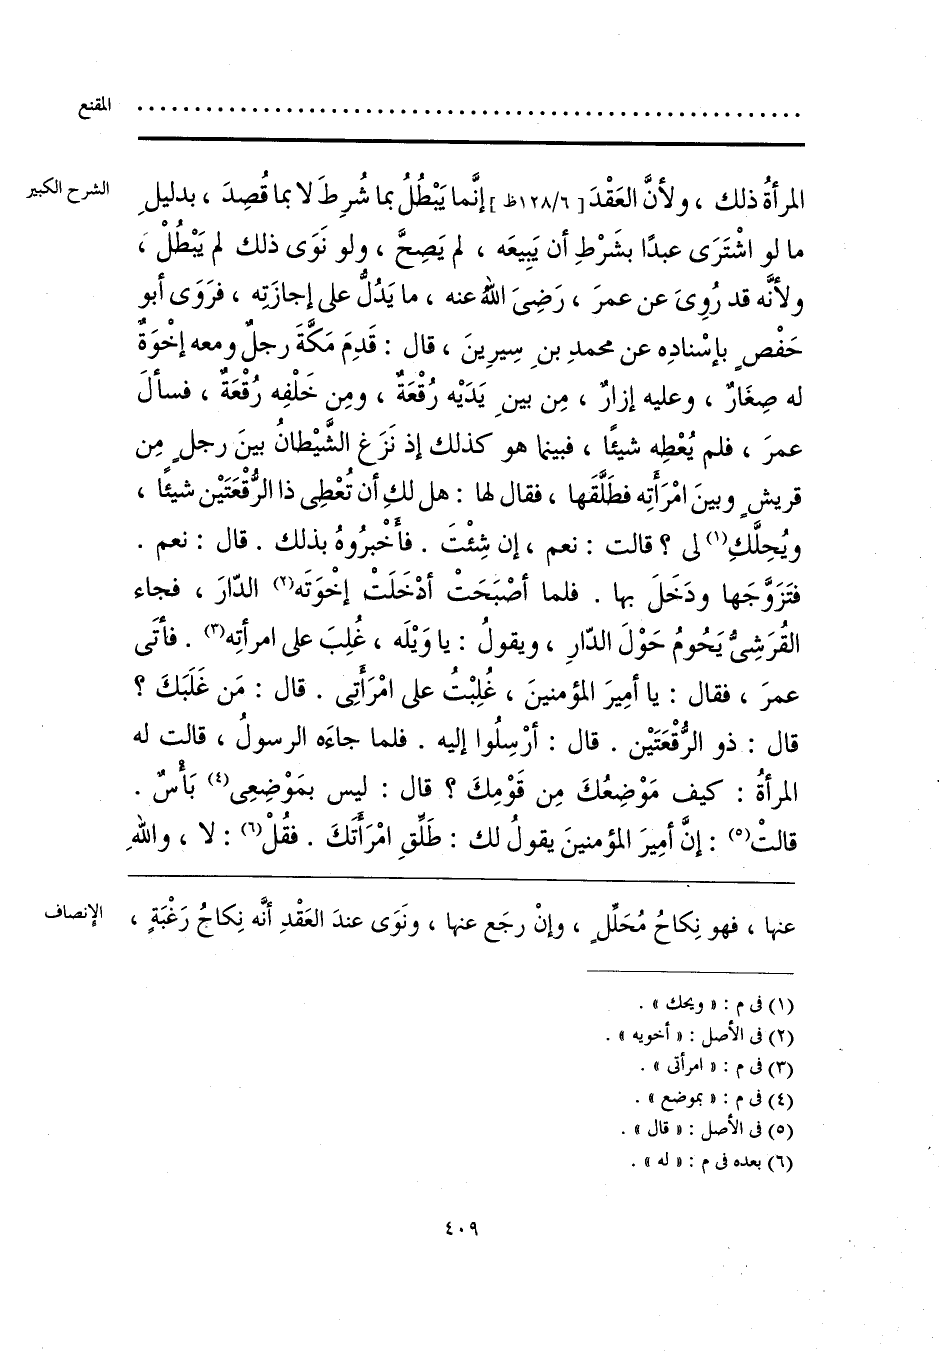 المقنع ..........................................................
الشرح الكبير
المرأةُ ذلك ، ولأنَّ العَقْدَ [ ١٢٨/٦ظ ] إنَّما يَبْطُلُ بما شُرِطَ لا بما قُصِدَ ، بدليلِ
ما لو اشْتَرَى عبدًا بشَرْطِ أن يَبِيعَه ، لم يَصِحَّ ، ولو نَوَى ذلك لم يَبْطُلْ ،
ولأنَّه قد رُوِىَ عن عمرَ ، رَضِىَ اللهُ عنه ، ما يَدُلُّ على إجازَتِه ، فرَوَى أبو
حَفْصٍ بإسْنادِه عن محمدِ بنِ سِيرِينَ ، قال : قَدِمَ مَكَّةَ رجلٌ ومعه إخْوَةٌ
له صِغَارٌ ، وعليه إزارٌ ، مِن بينِ يَدَيْه رُقْعَةٌ ، ومِن خَلْفِه رُقْعَةٌ ، فسألَ
عمرَ ، فلم يُعْطِه شيئًا ، فبينما هو كذلك إذ نَزَغ الشَّيْطانُ بينَ رجلٍ مِن
قريشٍ وبينَ امْرَأَتِه فطَلَّقَها ، فقال لها : هل لكِ أن تُعْطِى ذا الرُّقْعَتَيْن شيئًا ،
ويُحِلَّكِ(١) لى ؟ قالت : نعم ، إن شِئْتَ . فأَخْبرُوهُ بذلك . قال : نعم .
فتَزَوَّجَها ودَخَلَ بها . فلما أصْبَحَتْ أدْخَلَتْ إخْوَتَه(٢) الدّارَ ، فجاء
القُرَشِىُّ يَحُومُ حَوْلَ الدّارِ ، ويقولُ : يا وَيْلَه ، غُلِبَ على امرأتِه(٣) . فأتَى
عمرَ ، فقال : يا أميرَ المؤمنينَ ، غُلِبْتُ على امْرَأَتِى . قال : مَن غَلَبَكَ ؟
قال : ذو الرُّقْعَتَيْن . قال : أرْسِلُوا إليه . فلما جاءَه الرسولُ ، قالت له
المرأةُ : كيف مَوْضِعُكَ مِن قَوْمِكَ ؟ قال : ليس بمَوْضِعِى(٤) بَأْسٌ .
قالتْ(٥) : إنَّ أميرَ المؤمنينَ يقولُ لك : طَلِّقِ امْرَأَتَكَ . فقُلْ(٦) : لا ، واللهِ
الإنصاف
عنها ، فهو نِكاحُ مُحَلِّلٍ ، وإنْ رجَع عنها ، ونَوَى عندَ العَقْدِ أنَّه نِكاحُ رَغْبَةٍ ،
(١) فى م : « ويحك » .
(٢) فى الأصل : « أخويه » .
(٣) فى م : « امرأتى » .
(٤) فى م : « بموضع » .
(٥) فى الأصل : « قال » .
(٦) بعده فى م : « له » .
٤٠٩